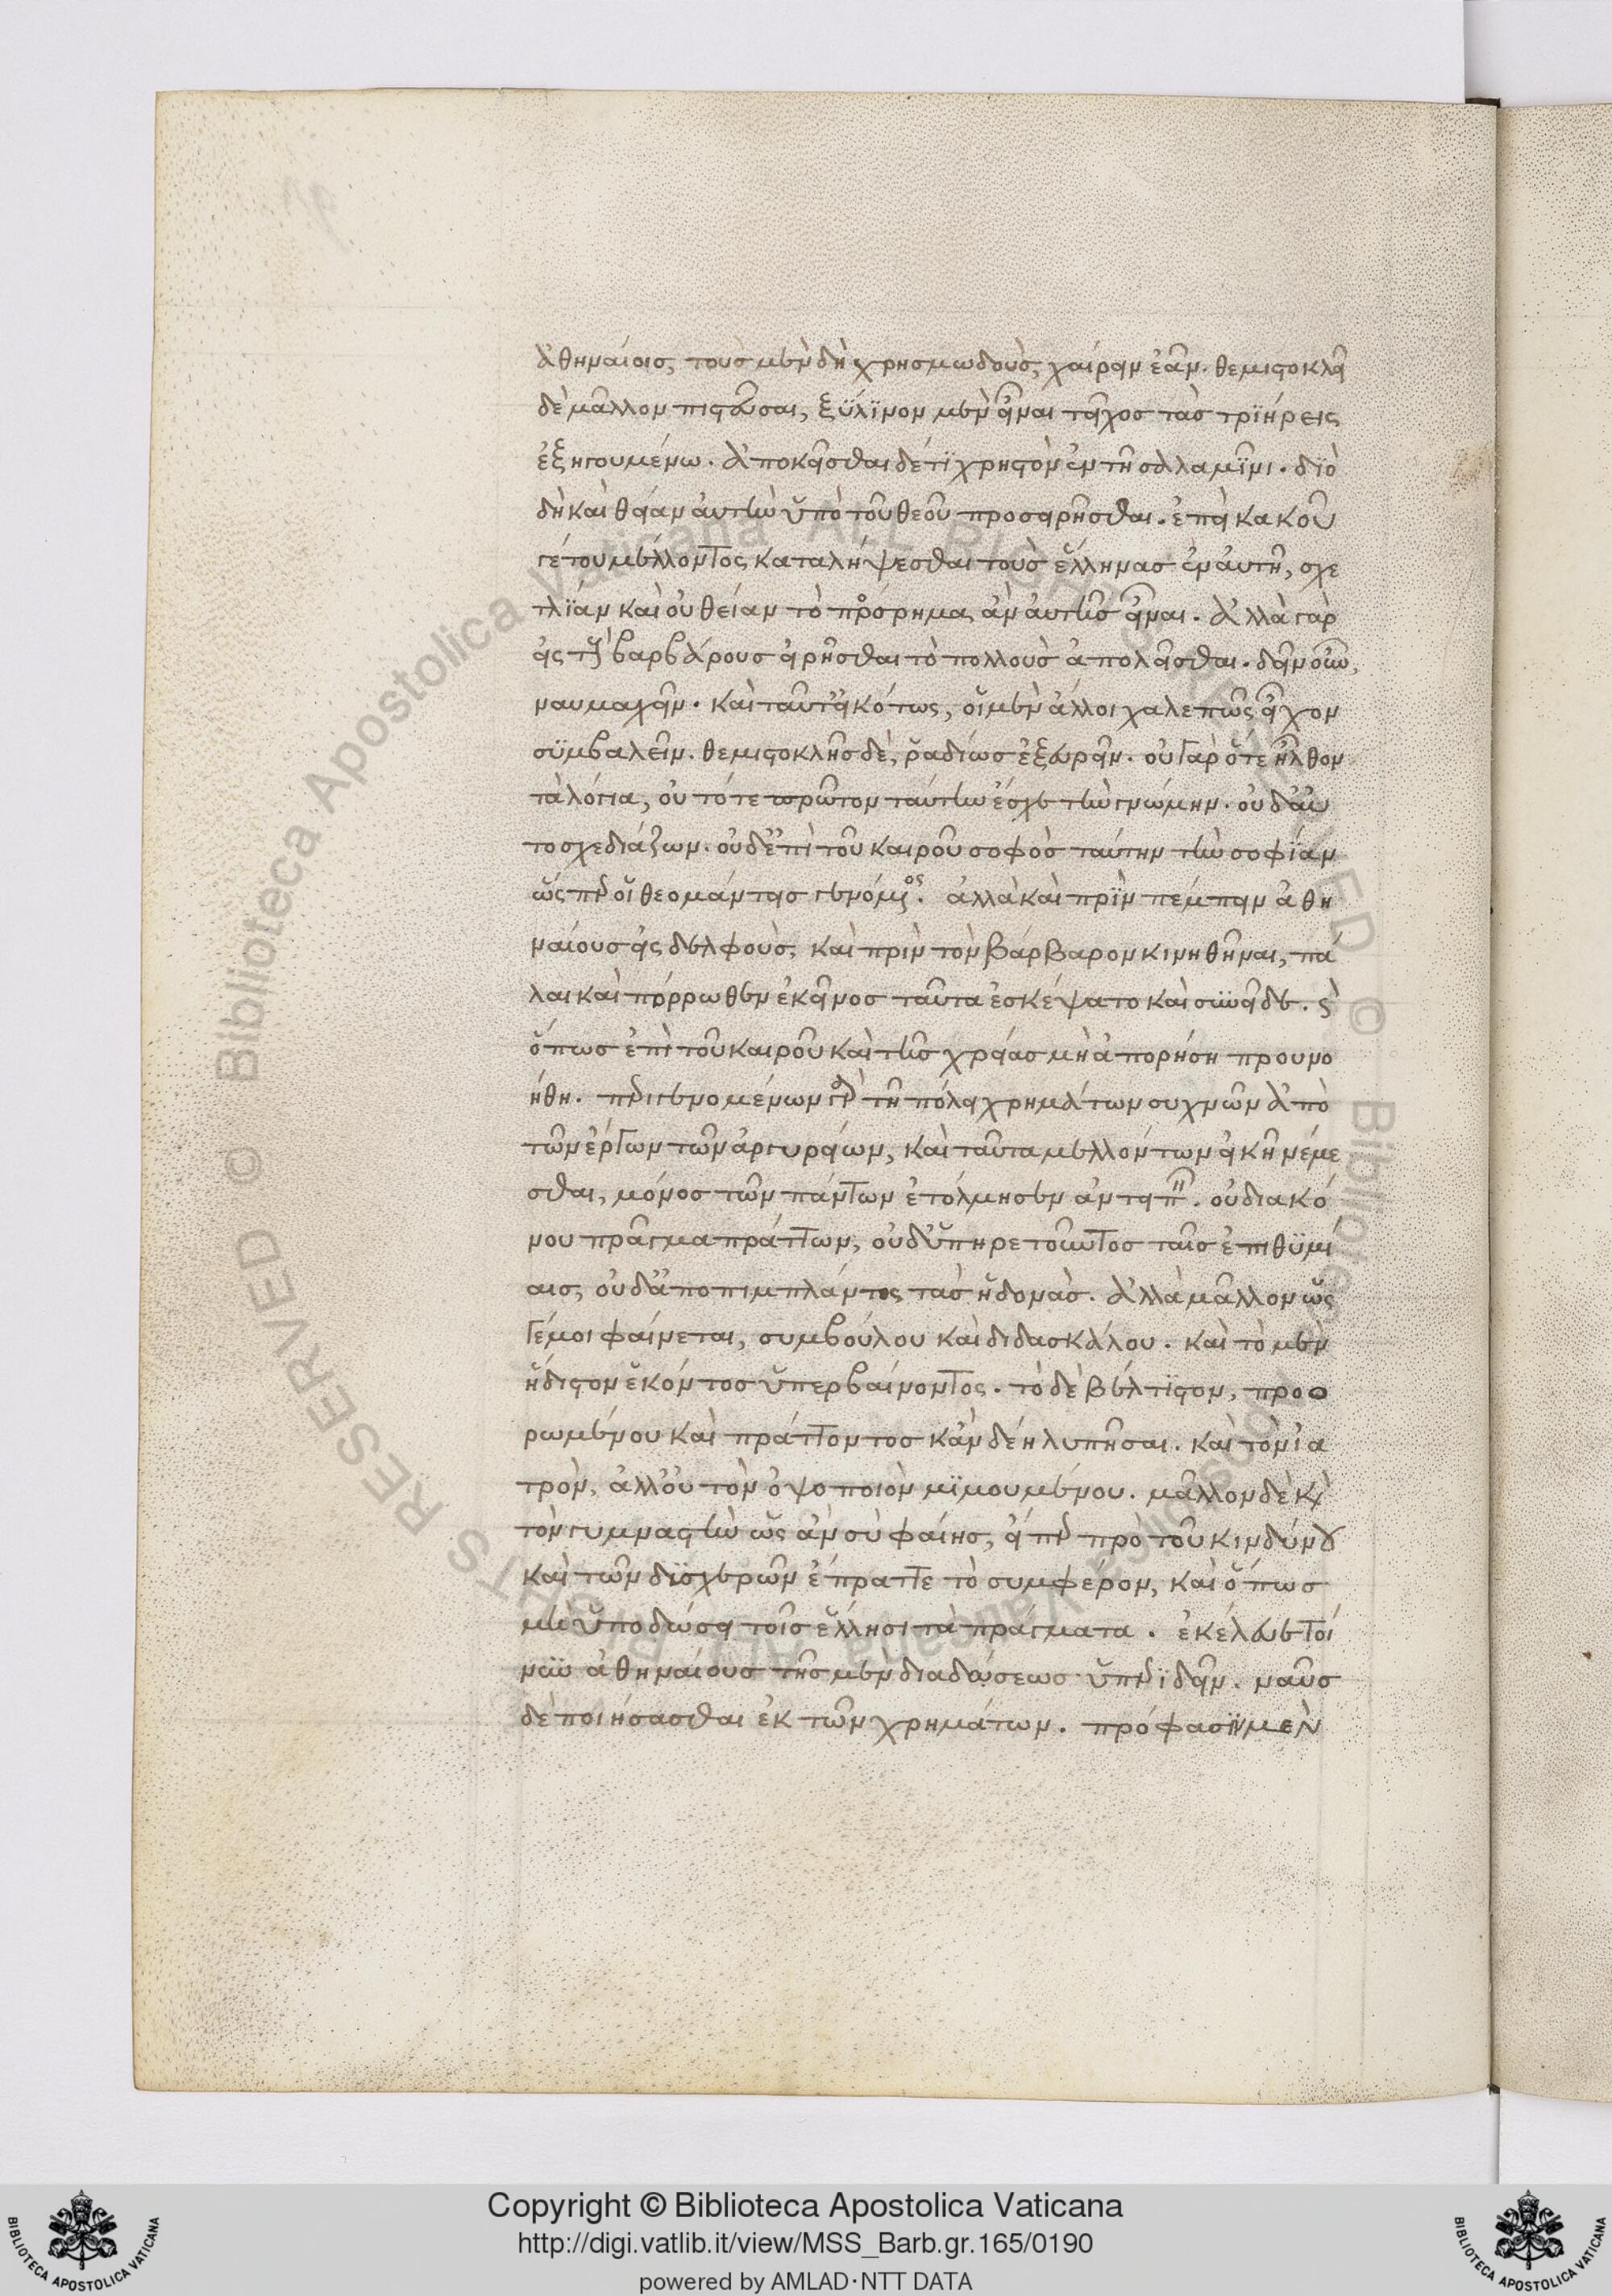 ἀθηναίοις, τοὺς μὲν δὴ χρησμωδοὺς, χαίρειν ἐᾶν. θεμιστοκλεῖ
δὲ μᾶλλον πιστεῦσαι, ξύλϊνον μὲν εἶναι τεῖχος τὰς τρϊήρεις
ἐξηγουμένω. ἀποκεῖσθαι δέ τϊ χρηστὸν ἐν τῆ σαλαμῖνι. δϊὸ
δὴ καὶ θείαν ἀυτὴν ὑπὸ τοῦ θεοῦ προσειρῆσθαι. ἐπεὶ κακοῦ
γέ του μέλλοντος καταλήψεσθαι τοὺς ἕλληνας ἐν ἀυτῆ, σχε
τλίαν καὶ οὐ θείαν τὸ πρόσρημα ἀν ἀυτῆς εἶναι. ἀλλὰ γὰρ
εἰς τοὺς βαρβάρους εἰρῆσθαι τὸ πολλοὺς ἀπολεῖσθαι. δεῖν οὖν,
ναυμαχεῖν. καὶ ταῦτ' εἰκότως, οἱ μὲν ἄλλοι χαλεπῶς εἶχον
συμβαλεῖν. θεμιστοκλῆς δὲ, ῥαδίως ἐξεωρεῖν. οὐ γὰρ ὅτε ἦλθον
τὰ λόγια, οὐ τότε πρῶτον ταύτην ἔσχε τὴν γνώμην. οὐδ' ἀυ
τοσχεδιάζων. οὐδ' ἐπὶ τοῦ καιροῦ σοφὸς ταύτην τὴν σοφίαν
ὥς περ οἱ θεομάντεις γενόμενος. ἀλλὰ καὶ πρὶν πέμπειν ἀθη
ναίους εἰς δελφοὺς, καὶ πρὶν τὸν βάρβαρον κινηθῆναι, πά
λαι καὶ πόρρωθεν ἐκεῖνος ταῦτα ἐσκέψατο καὶ συνεῖδε. καὶ
ὅπως ἐπὶ τοῦ καιροῦ καὶ τῆς χρείας μὴ ἀπορήση προυνο
ήθη. περιγενομένων γὰρ τῆ πόλει χρημάτων συχνῶν ἀπὸ
τῶν ἔργων τῶν ἀργυρείων, καὶ ταῦτα μελλόντων εἰκῆ νέμε
σθαι, μόνος τῶν πάντων ἐτόλμησεν ἀντειπεῖν. οὐ διακό
νου πρᾶγμα πράττων, οὐδ' ὑπηρετοῦντος ταῖς ἐπιθϋμί
αις, οὐδ' ἀποπιμπλάντος τὰς ἡδονὰς. ἀλλὰ μᾶλλον ὥς
γέ μοι φαίνεται, συμβούλου καὶ διδασκάλου. καὶ τὸ μὲν
ἥδιστον ἑκόντος ὑπερβαίνοντος. τὸ δὲ βέλτϊστον, προο
ρωμένου καὶ πράττοντος κἀν δέη λυπῆσαι. καὶ τὸν ἰα
τρὸν, ἀλλ' οὐ τὸν ὀψοποιὸν μϊμουμένου. μᾶλλον δὲ καὶ
τὸν γυμναστὴν ὡς ἀν σὺ φαίης, εἴ περ πρὸ τοῦ κινδύνου
καὶ τῶν δϊσχερῶν ἔπραττε τὸ συμφέρον, καὶ ὅπως
μὴ ὑποδώσει τοῖς ἕλλησι τὰ πράγματα. ἐκέλευε τοί
νυν ἀθηναίους τῆς μὲν διαδώσεως ὑπεριδεῖν. ναῦς
δὲ ποιήσασθαι ἐκ τῶν χρημάτων. πρόφασϊν μὲν
Copyright © Biblioteca Apostolica Vaticana
http://digi.vatlib.it/view/MSS_Barb.gr.165/0190
powered by AMLAD·NTT DATA